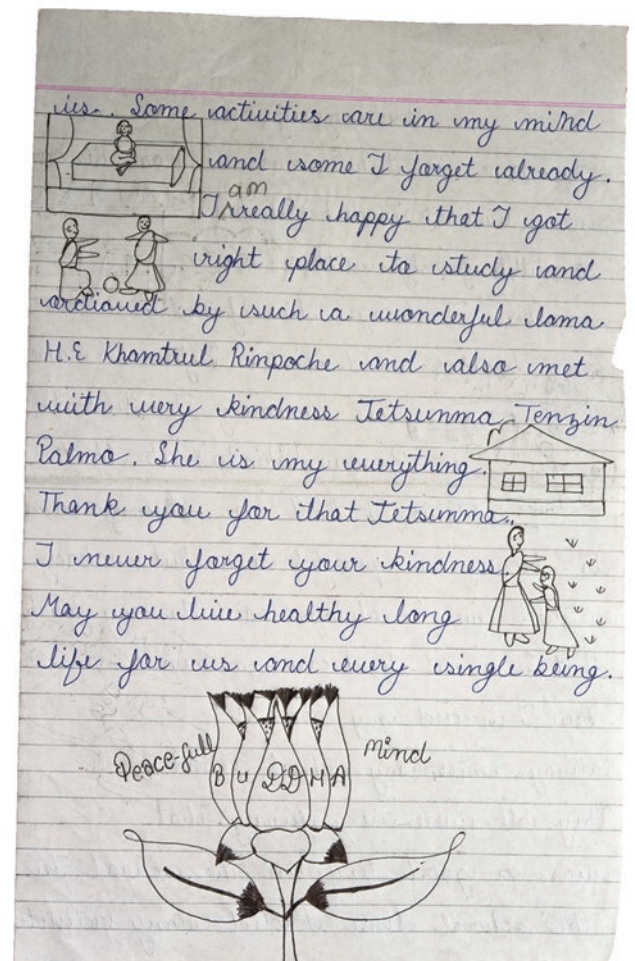 us. Some activities are in my mind
and some I forget already.
I am really happy that I got
right place to study and
ordianed by such a wonderful lama
H.E Khamtrul Rinpoche and also met
with very kindness Jetsunma Tenzin
Palmo. She is my everything.
Thank you for that Jetsunma..
I never forget your kindness
May you live healthy long
life for us and every single being.
Peace-full Mind
BUDDHA